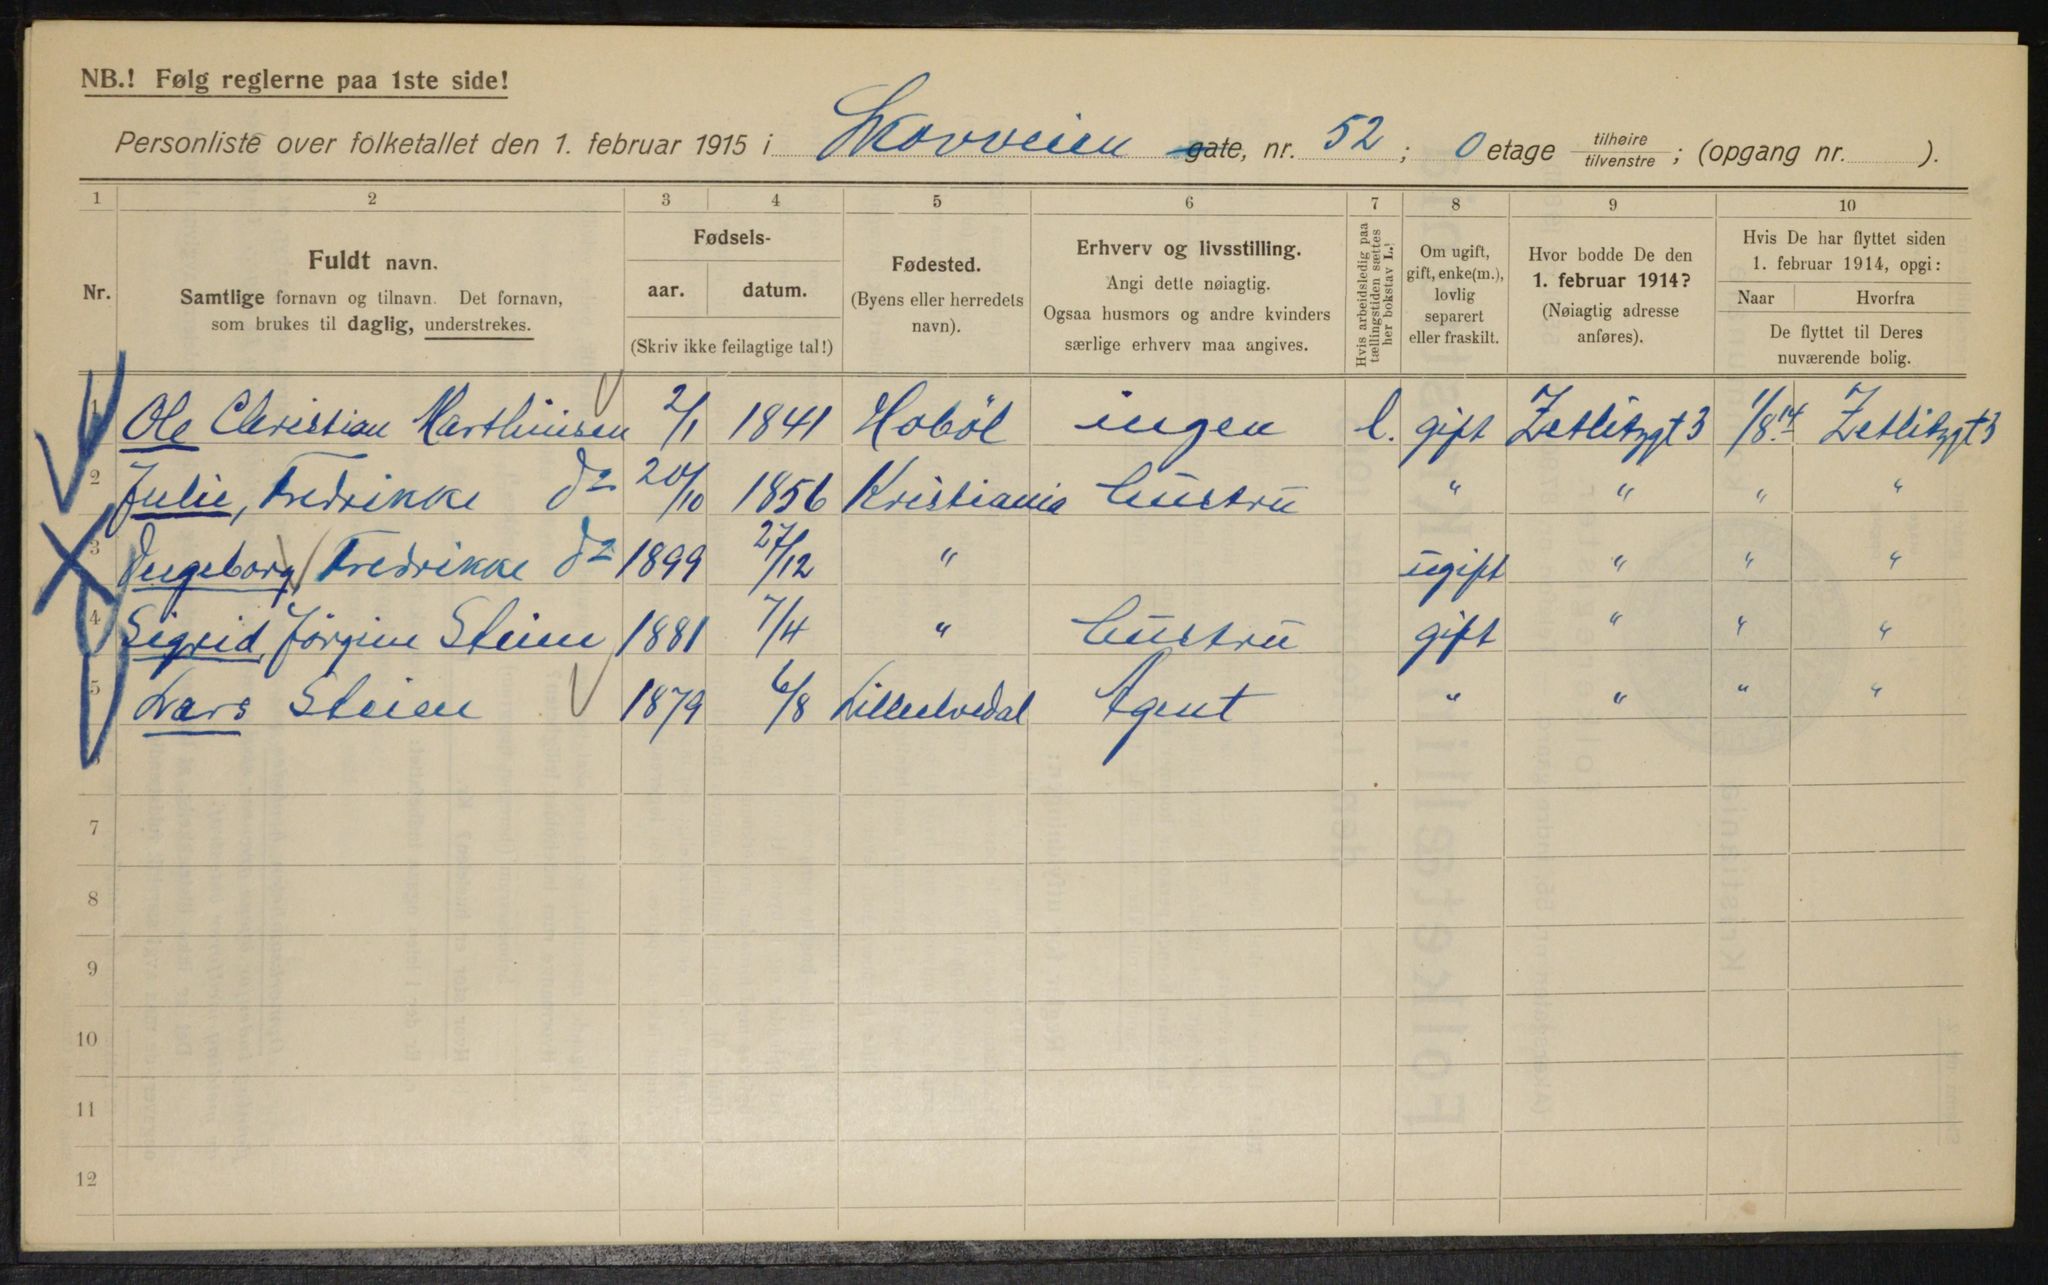 NB.! Følg reglerne paa 1ste side!
Personliste over folketallet den 1. februar 1915 i Skovveien gate, nr. 52; 0 etage tilhøire tilvenstre; (opgang nr. ).
1 2 3 4 5 6 7 8 9 10
Nr.
Fuldt navn.
Samtlige fornavn og tilnavn. Det fornavn,
som brukes til daglig, understrekes.
Fødsels-
aar. datum.
(Skriv ikke feilagtige tal!)
Fødested.
(Byens eller herredets
navn).
Erhverv og livsstilling.
Angi dette nøiagtig.
Ogsaa husmors og andre kvinders
særlige erhverv maa angives.
Hvis arbeidsledig paa
tællingstiden sættes
her bokstav L.!
Om ugift,
gift, enke(m.),
lovlig
separert
eller fraskilt.
Hvor bodde De den
1. februar 1914?
(Nøiagtig adresse
anføres).
Hvis De har flyttet siden
1. februar 1914, opgi:
Naar Hvorfra
De flyttet til Deres
nuværende bolig.
1 Ole Christian Marthinsen 2/1 1841 Hobøl ingen l. gift Zetlitzgt 3 1/8 14 Zetlitzgt 3
2 Julie, Fredrikke do 20/10 1856 Kristiania hustru " " " "
3 Ingeborg, Fredrikke do 1899 27/12 " ugift " " "
4 Sigrid, Jørgine Steien 1881 7/4 " hustru gift " " "
5 Lars Steien 1879 6/8 Lilleelvedal Agent " " " "
6
7
8
9
10
11
12